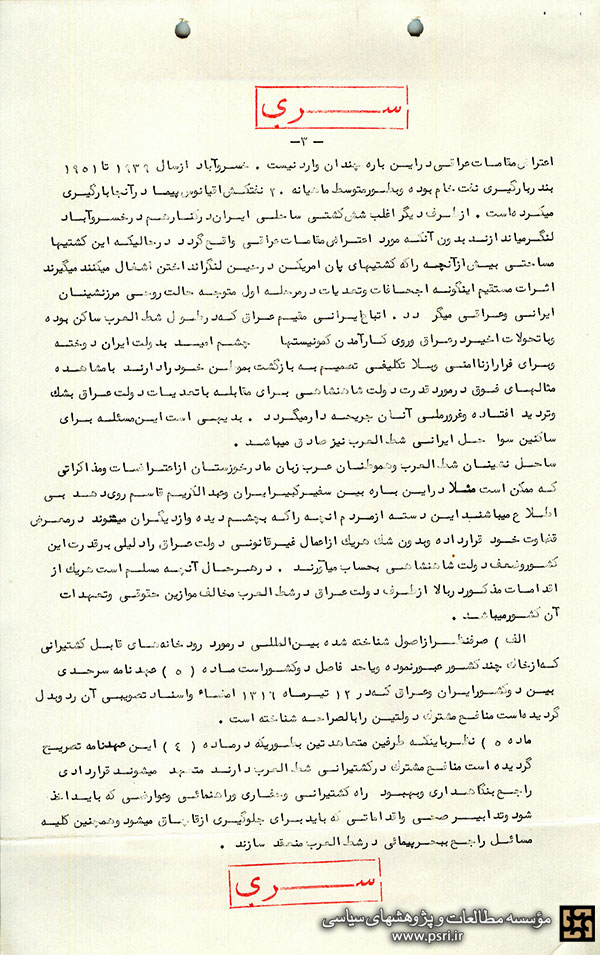 سري
-۳-
اعتراض مقامات عراقی دراین باره چندان وارد نیست . خسروآباد ازسال ۱۹۳۹ تا ۱۹۵۱
بندر بارگیری نفت خام بوده وبطور متوسط ماهیانه ۲۰ نفتکش اقیانوس پیما درآنجا بارگیری
میکرده است . ازطرف دیگر اغلب شش کشتی ساحلی ایران درکنار هم درخسروآباد
لنگر میاندازند بدون آنکه مورد اعتراض مقامات عراقی واقع گردد درحالیکه این کشتیها
مساحتی بیش ازآنچه راکه کشتیهای پان امریکن درحین لنگرانداختن اشغال میکنند میگیرند
اثرات مستقیم اینگونه اجحافات وتعدیات درمرحله اول متوجه حالت روحی مرزنشینان
ایرانی وعراقی میگر دد . اتباع ایرانی مقیم عراق که درطول شط العرب ساکن بوده
وباتحولات اخیر درعراق وروی کارآمدن کمونیستها چشم امید بدولت ایران دوخته
وبرای فرار ازناامنی وبلا تکلیفی تصمیم به بازگشت بموطن خود را دارند بامشاهده
مثالهای فوق درمورد قدرت دولت شاهنشاهی برای مقابله باتعدیات دولت عراق بشك
وتردید افتاده وغرورملی آنان جریحه دارمیگردد . بدیهی است این مسئله برای
ساکنین سوا حل ایرانی شط العرب نیز صادق میباشد .
ساحل نشینان شط العرب وهموطنان عرب زبان مادرخوزستان ازاعتراضات ومذاکراتی
که ممکن است مثلا دراین باره بین سفیرکبیرایران وعبدالکریم قاسم روی دهد بی
اطلاع میباشند این دسته ازمردم آنچه راکه بچشم دیده وازدیگران میشنوند درمعرض
قضاوت خود قرارداده وبدون شك هریك ازاعمال غیرقانونی دولت عراق را دلیلی برقدرت این
کشور وضعف دولت شاهنشاهی بحساب میآورند . درهرحال آنچه مسلم است هریك از
اقدامات مذکور دربالا ازطرف دولت عراق درشط العرب مخالف موازین حقوقی وتعهدات
آن کشورمیباشد .
الف ) صرفنظر ازاصول شناخته شده بین المللی درمورد رودخانه های قابل کشتیرانی
که ازخاك چند کشور عبورنموده ویاحد فاصل دوکشوراست ماده ( ۵ ) عهدنامه سرحدی
بین دوکشورایران وعراق که در ۱۲ تیرماه ۱۳۱۶ امضاء واسناد تصویبی آن رد وبدل
گردیده است منافع مشترك دولتین رابالصراحه شناخته است .
ماده ۵ ) نظرباینکه طرفین متعاهدتین بطوریکه درماده ( ٤ ) این عهدنامه تصریح
گردیده است منافع مشترك درکشتیرانی شط العرب دارند متعهد میشوند قراردادی
راجع بنگاهداری وبهبود راه کشتیرانی وحفاری وراهنمائی وعوارضی که باید اخذ
شود وتدابیر صحی واقداماتی که باید برای جلوگیری ازقاچاق میشود وهمچنین کلیه
مسائل راجع ببحرپیمائی درشط العرب منعقد سازند .
سري
مؤسسه مطالعات و پژوهشهای سیاسی
www.psri.ir